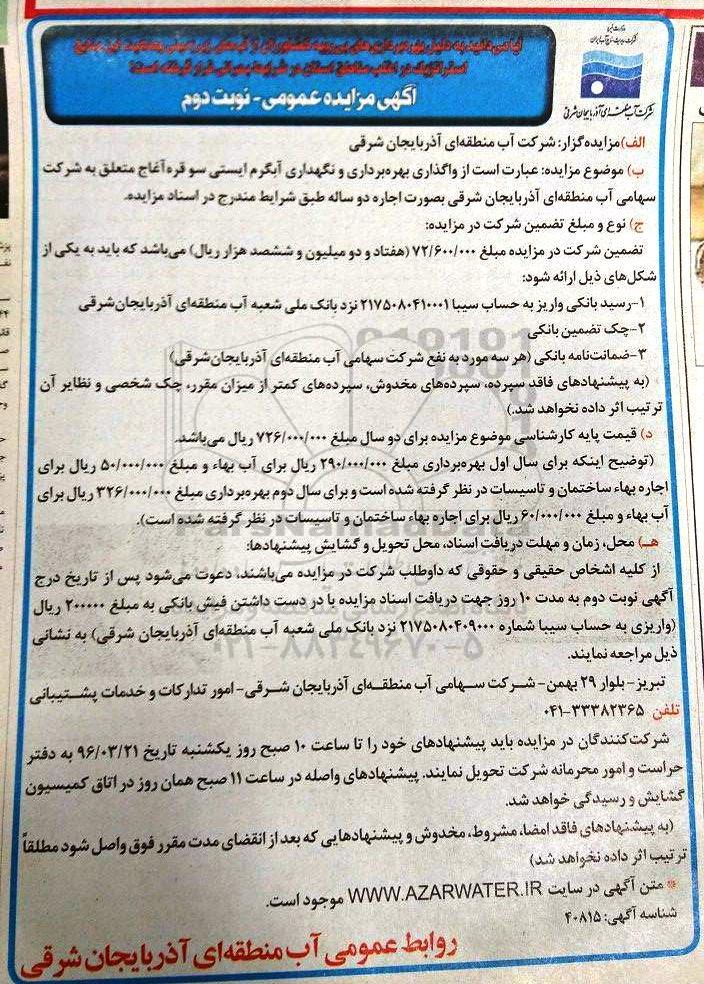 وزارت نیرو
شرکت آب منطقه‌ای آذربایجان شرقی
آیا می‌دانید به دلیل بهره‌برداری‌های بی‌رویه کشاورزان از آب‌های زیرزمینی وضعیت این منابع
استراتژیک در اغلب مناطق استان در شرایط بحرانی قرار گرفته است؟
آگهی مزایده عمومی - نوبت دوم
الف) مزایده‌گزار: شرکت آب منطقه‌ای آذربایجان شرقی
ب) موضوع مزایده: عبارت است از واگذاری بهره‌برداری و نگهداری آبگرم ایستی سو قره‌آغاج متعلق به شرکت
سهامی آب منطقه‌ای آذربایجان شرقی بصورت اجاره دو ساله طبق شرایط مندرج در اسناد مزایده.
ج) نوع و مبلغ تضمین شرکت در مزایده:
تضمین شرکت در مزایده مبلغ ۷۲/۶۰۰/۰۰۰ (هفتاد و دو میلیون و ششصد هزار ریال) می‌باشد که باید به یکی از
شکل‌های ذیل ارائه شود:
۱-رسید بانکی واریز به حساب سیبا ۲۱۷۵۰۸۰۴۱۰۰۰۱ نزد بانک ملی شعبه آب منطقه‌ای آذربایجان‌شرقی
۲-چک تضمین بانکی
۳-ضمانت‌نامه بانکی (هر سه مورد به نفع شرکت سهامی آب منطقه‌ای آذربایجان‌شرقی)
(به پیشنهادهای فاقد سپرده، سپرده‌های مخدوش، سپرده‌های کمتر از میزان مقرر، چک شخصی و نظایر آن
ترتیب اثر داده نخواهد شد.)
د) قیمت پایه کارشناسی موضوع مزایده برای دو سال مبلغ ۷۲۶/۰۰۰/۰۰۰ ریال می‌باشد.
(توضیح اینکه برای سال اول بهره‌برداری مبلغ ۲۹۰/۰۰۰/۰۰۰ ریال برای آب بهاء و مبلغ ۵۰/۰۰۰/۰۰۰ ریال برای
اجاره بهاء ساختمان و تاسیسات در نظر گرفته شده است و برای سال دوم بهره‌برداری مبلغ ۳۲۶/۰۰۰/۰۰۰ ریال برای
آب بهاء و مبلغ ۶۰/۰۰۰/۰۰۰ ریال برای اجاره بهاء ساختمان و تاسیسات در نظر گرفته شده است).
هـ) محل، زمان و مهلت دریافت اسناد، محل تحویل و گشایش پیشنهادها:
از کلیه اشخاص حقیقی و حقوقی که داوطلب شرکت در مزایده می‌باشند، دعوت می‌شود پس از تاریخ درج
آگهی نوبت دوم به مدت ۱۰ روز جهت دریافت اسناد مزایده با در دست داشتن فیش بانکی به مبلغ ۲۰۰۰۰۰ ریال
(واریزی به حساب سیبا شماره ۲۱۷۵۰۸۰۴۰۹۰۰۰ نزد بانک ملی شعبه آب منطقه‌ای آذربایجان شرقی) به نشانی
ذیل مراجعه نمایند.
تبریز- بلوار ۲۹ بهمن- شرکت سهامی آب منطقه‌ای آذربایجان شرقی- امور تدارکات و خدمات پشتیبانی
تلفن ۳۳۳۸۲۳۶۵-۰۴۱
شرکت‌کنندگان در مزایده باید پیشنهادهای خود را تا ساعت ۱۰ صبح روز یکشنبه تاریخ ۹۶/۰۳/۲۱ به دفتر
حراست و امور محرمانه شرکت تحویل نمایند. پیشنهادهای واصله در ساعت ۱۱ صبح همان روز در اتاق کمیسیون
گشایش و رسیدگی خواهد شد.
(به پیشنهادهای فاقد امضا، مشروط، مخدوش و پیشنهادهایی که بعد از انقضای مدت مقرر فوق واصل شود مطلقاً
ترتیب اثر داده نخواهد شد)
* متن آگهی در سایت WWW.AZARWATER.IR موجود است.
شناسه آگهی: ۴۰۸۱۵
روابط عمومی آب منطقه‌ای آذربایجان شرقی
۰۲۱-۸۸۳۴۹۶۷۰-۵